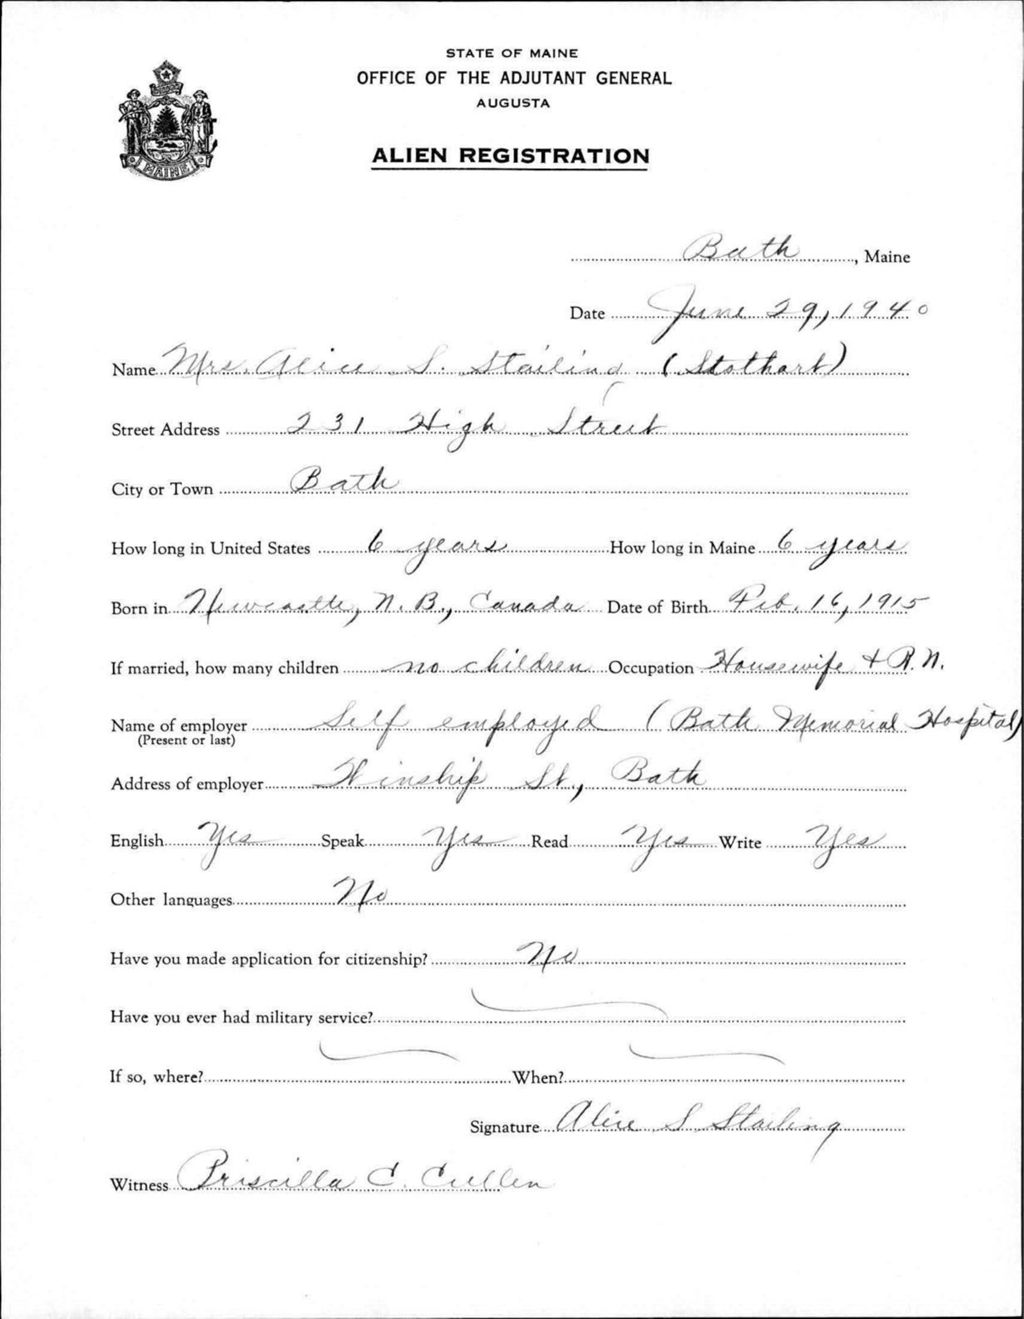 STATE OF MAINE
OFFICE OF THE ADJUTANT GENERAL
AUGUSTA
MAINE
ALIEN REGISTRATION
Bath, Maine
Date June 29, 1940
Name Mrs. Alice S. Stailing (Stothart)
Street Address 231 High Street
City or Town Bath
How long in United States 6 years How long in Maine 6 years
Born in Newcastle, N.B., Canada Date of Birth Feb. 16, 1915
If married, how many children no children Occupation Housewife + R.N.
Name of employer Self employed (Bath Memorial Hospital)
(Present or last)
Address of employer Winship St., Bath
English Yes Speak Yes Read Yes Write Yes
Other languages No
Have you made application for citizenship? No
Have you ever had military service?
If so, where? When?
Signature Alice S Stailing
Witness Priscilla C. Cullen